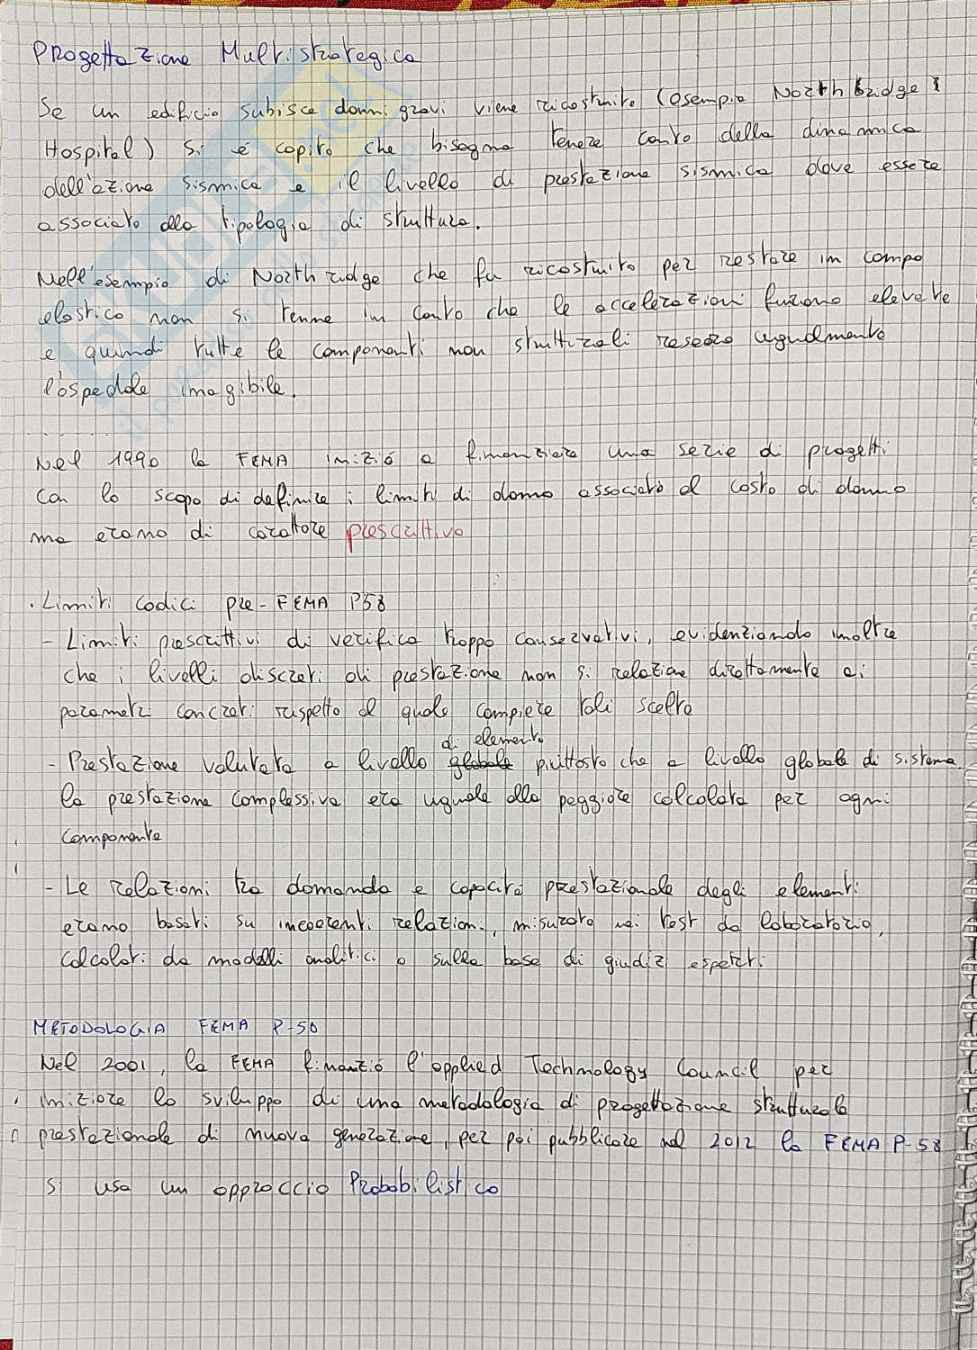 Progettazione Multistrategica
Se un edificio subisce danni gravi viene ricostruito (esempio North bridge
Hospital) si è capito che bisogna tenere conto della dinamica
dell'azione sismica e il livello di prestazione sismica dove essere
associato alla tipologia di struttura.
Nell'esempio di North ridge che fu ricostruito per restare in campo
elastico non si tenne in conto che le accelerazioni furono elevate
e quindi tutte le componenti non strutturali resero ugualmente
l'ospedale inagibile.
Nel 1990 la FEMA iniziò a finanziare una serie di progetti
Con lo scopo di definire i limiti di danno associato al costo di danno
ma erano di carattere prescrittivo
. Limiti codici pre-FEMA P58
- Limiti prescrittivi di verifica troppo conservativi, evidenziando inoltre
che i livelli discreti di prestazione non si relazione direttamente ai
parametri concreti rispetto al quale compiere tali scelte
di elemento
- Prestazione valutata a livello globale piuttosto che a livello globale di sistema
la prestazione complessiva era uguale alla peggiore calcolata per ogni
componente
- Le relazioni tra domanda e capacità prestazionale degli elementi
erano basati su incoerenti relazioni, misurato nei test da laboratorio,
calcolati da modelli analitici o sulla base di giudizi esperti.
METODOLOGIA FEMA P-58
Nel 2001, la FEMA finanziò l'applied Technology Council per
iniziare lo sviluppo di una metodologia di progettazione strutturale
prestazionale di nuova generazione, per poi pubblicare nel 2012 la FEMA P-58
Si usa un approccio Probabilistico